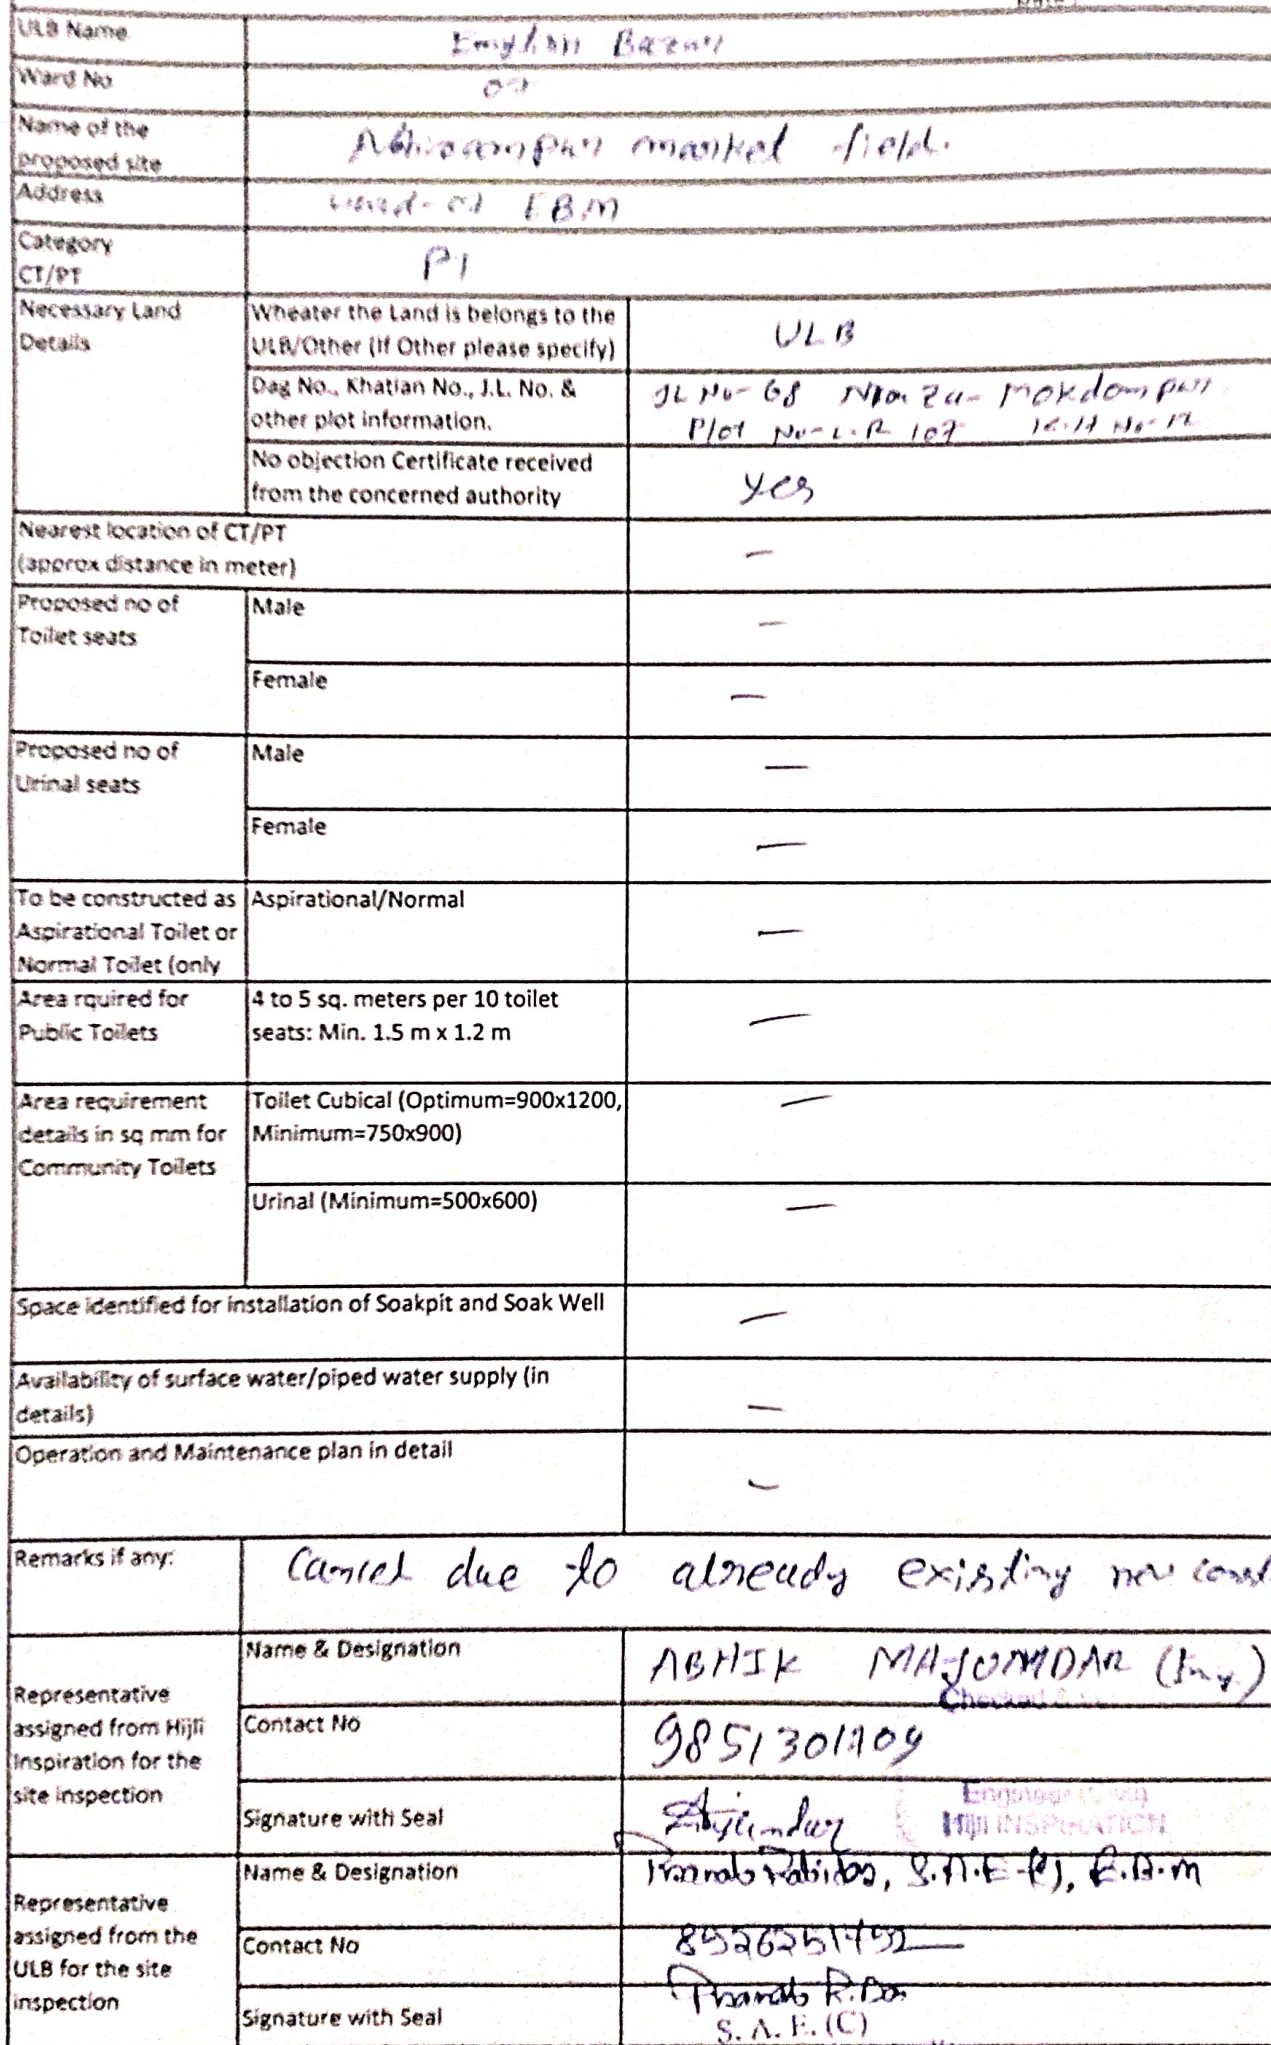 ULB Name English Bazar
Ward No 07
Name of the proposed site market field.
Address Ward-07 EBM
Category
CT/PT PT
Necessary Land Details
Wheater the Land is belongs to the ULB/Other (If Other please specify) ULB
Dag No., Khatian No., J.L. No. & other plot information. JL No- 68 Mouza- Mokdompur
Plot No- L.R 107
No objection Certificate received from the concerned authority yes
Nearest location of CT/PT
(approx distance in meter) —
Proposed no of Toilet seats
Male —
Female —
Proposed no of Urinal seats
Male —
Female —
To be constructed as Aspirational Toilet or Normal Toilet (only
Aspirational/Normal —
Area rquired for Public Toilets
4 to 5 sq. meters per 10 toilet seats: Min. 1.5 m x 1.2 m —
Area requirement details in sq mm for Community Toilets
Toilet Cubical (Optimum=900x1200, Minimum=750x900) —
Urinal (Minimum=500x600) —
Space identified for installation of Soakpit and Soak Well —
Availability of surface water/piped water supply (in details) —
Operation and Maintenance plan in detail —
Remarks if any: Cancel due to already existing new const
Representative assigned from Hijli Inspiration for the site inspection
Name & Designation ABHIK MAJUMDAR
Checked
Contact No
Signature with Seal
Engineer (Civil)
Hijli INSPIRATION
Representative assigned from the ULB for the site inspection
Name & Designation Pranab Rabidas, S.A.E-(C), E.B.M
Contact No
Signature with Seal Pranab R.Das
S. A. E. (C)